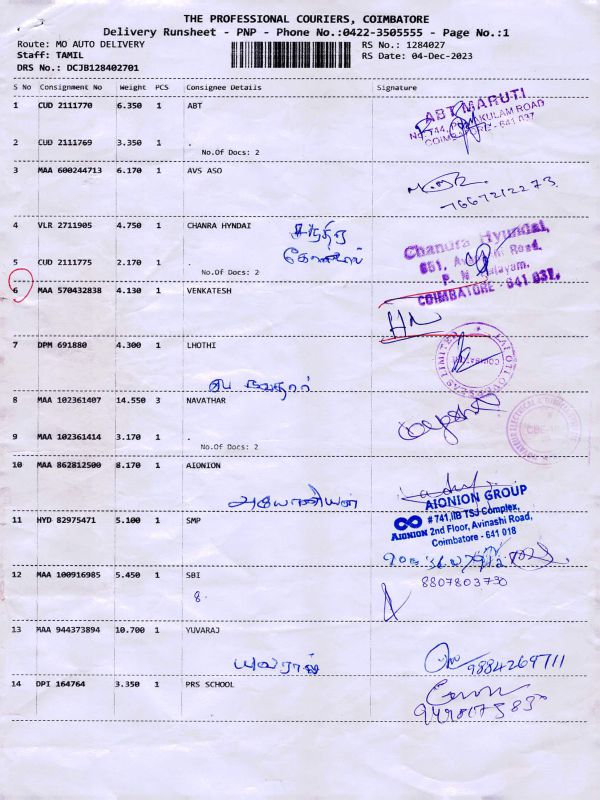 THE PROFESSIONAL COURIERS, COIMBATORE
Delivery Runsheet - PNP - Phone No.:0422-3505555 - Page No.:1
Route: MO AUTO DELIVERY
RS No.: 1284027
Staff: TAMIL
RS Date: 04-Dec-2023
DRS No.: DCJB128402701
S No Consignment No Weight PCS Consignee Details Signature
1 CUD 2111770 6.350 1 ABT
ABT MARUTI
COIMBATORE - 641 037
2 CUD 2111769 3.350 1 .
No.Of Docs: 2
3 MAA 600244713 6.170 1 AVS ASO
7667212273
4 VLR 2711905 4.750 1 CHANRA HYNDAI
சந்திர
Chandra Hyundai,
5 CUD 2111775 2.170 1 .
No.Of Docs: 2
COIMBATORE - 641 037.
6 MAA 570432838 4.130 1 VENKATESH
HN
7 DPM 691880 4.300 1 LHOTHI
8 MAA 102361407 14.550 3 NAVATHAR
9 MAA 102361414 3.170 1 .
No.Of Docs: 2
10 MAA 862812500 8.170 1 AIONION
AIONION GROUP
# 741,IIB TSJ Complex,
AIONION 2nd Floor, Avinashi Road,
Coimbatore - 641 018
11 HYD 82975471 5.100 1 SMP
12 MAA 100916985 5.450 1 SBI
8807803790
8.
13 MAA 944373894 10.700 1 YUVARAJ
யுவராஜ்
9884269711
14 DPI 164764 3.350 1 PRS SCHOOL